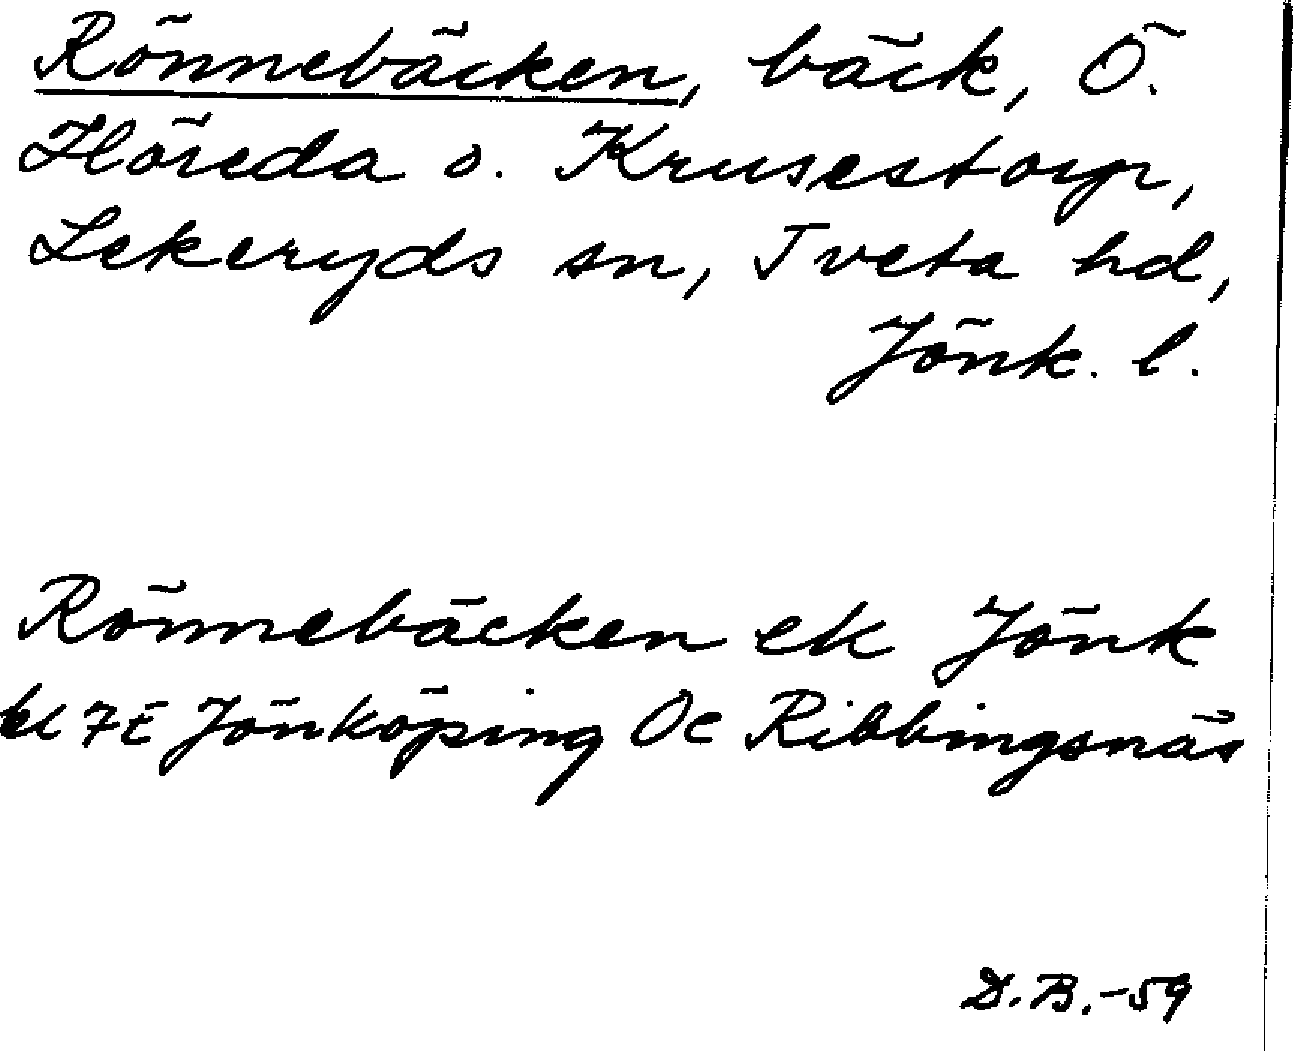 Rönnebäcken, bäck, Ö.
Höreda o. Krusestorp,
Lekeryds sn, Tveta hd,
Jönk. l.
Rönnebäcken ek Jönk
bl 7E Jönköping Öc Ribbingsnäs
D.B.-59